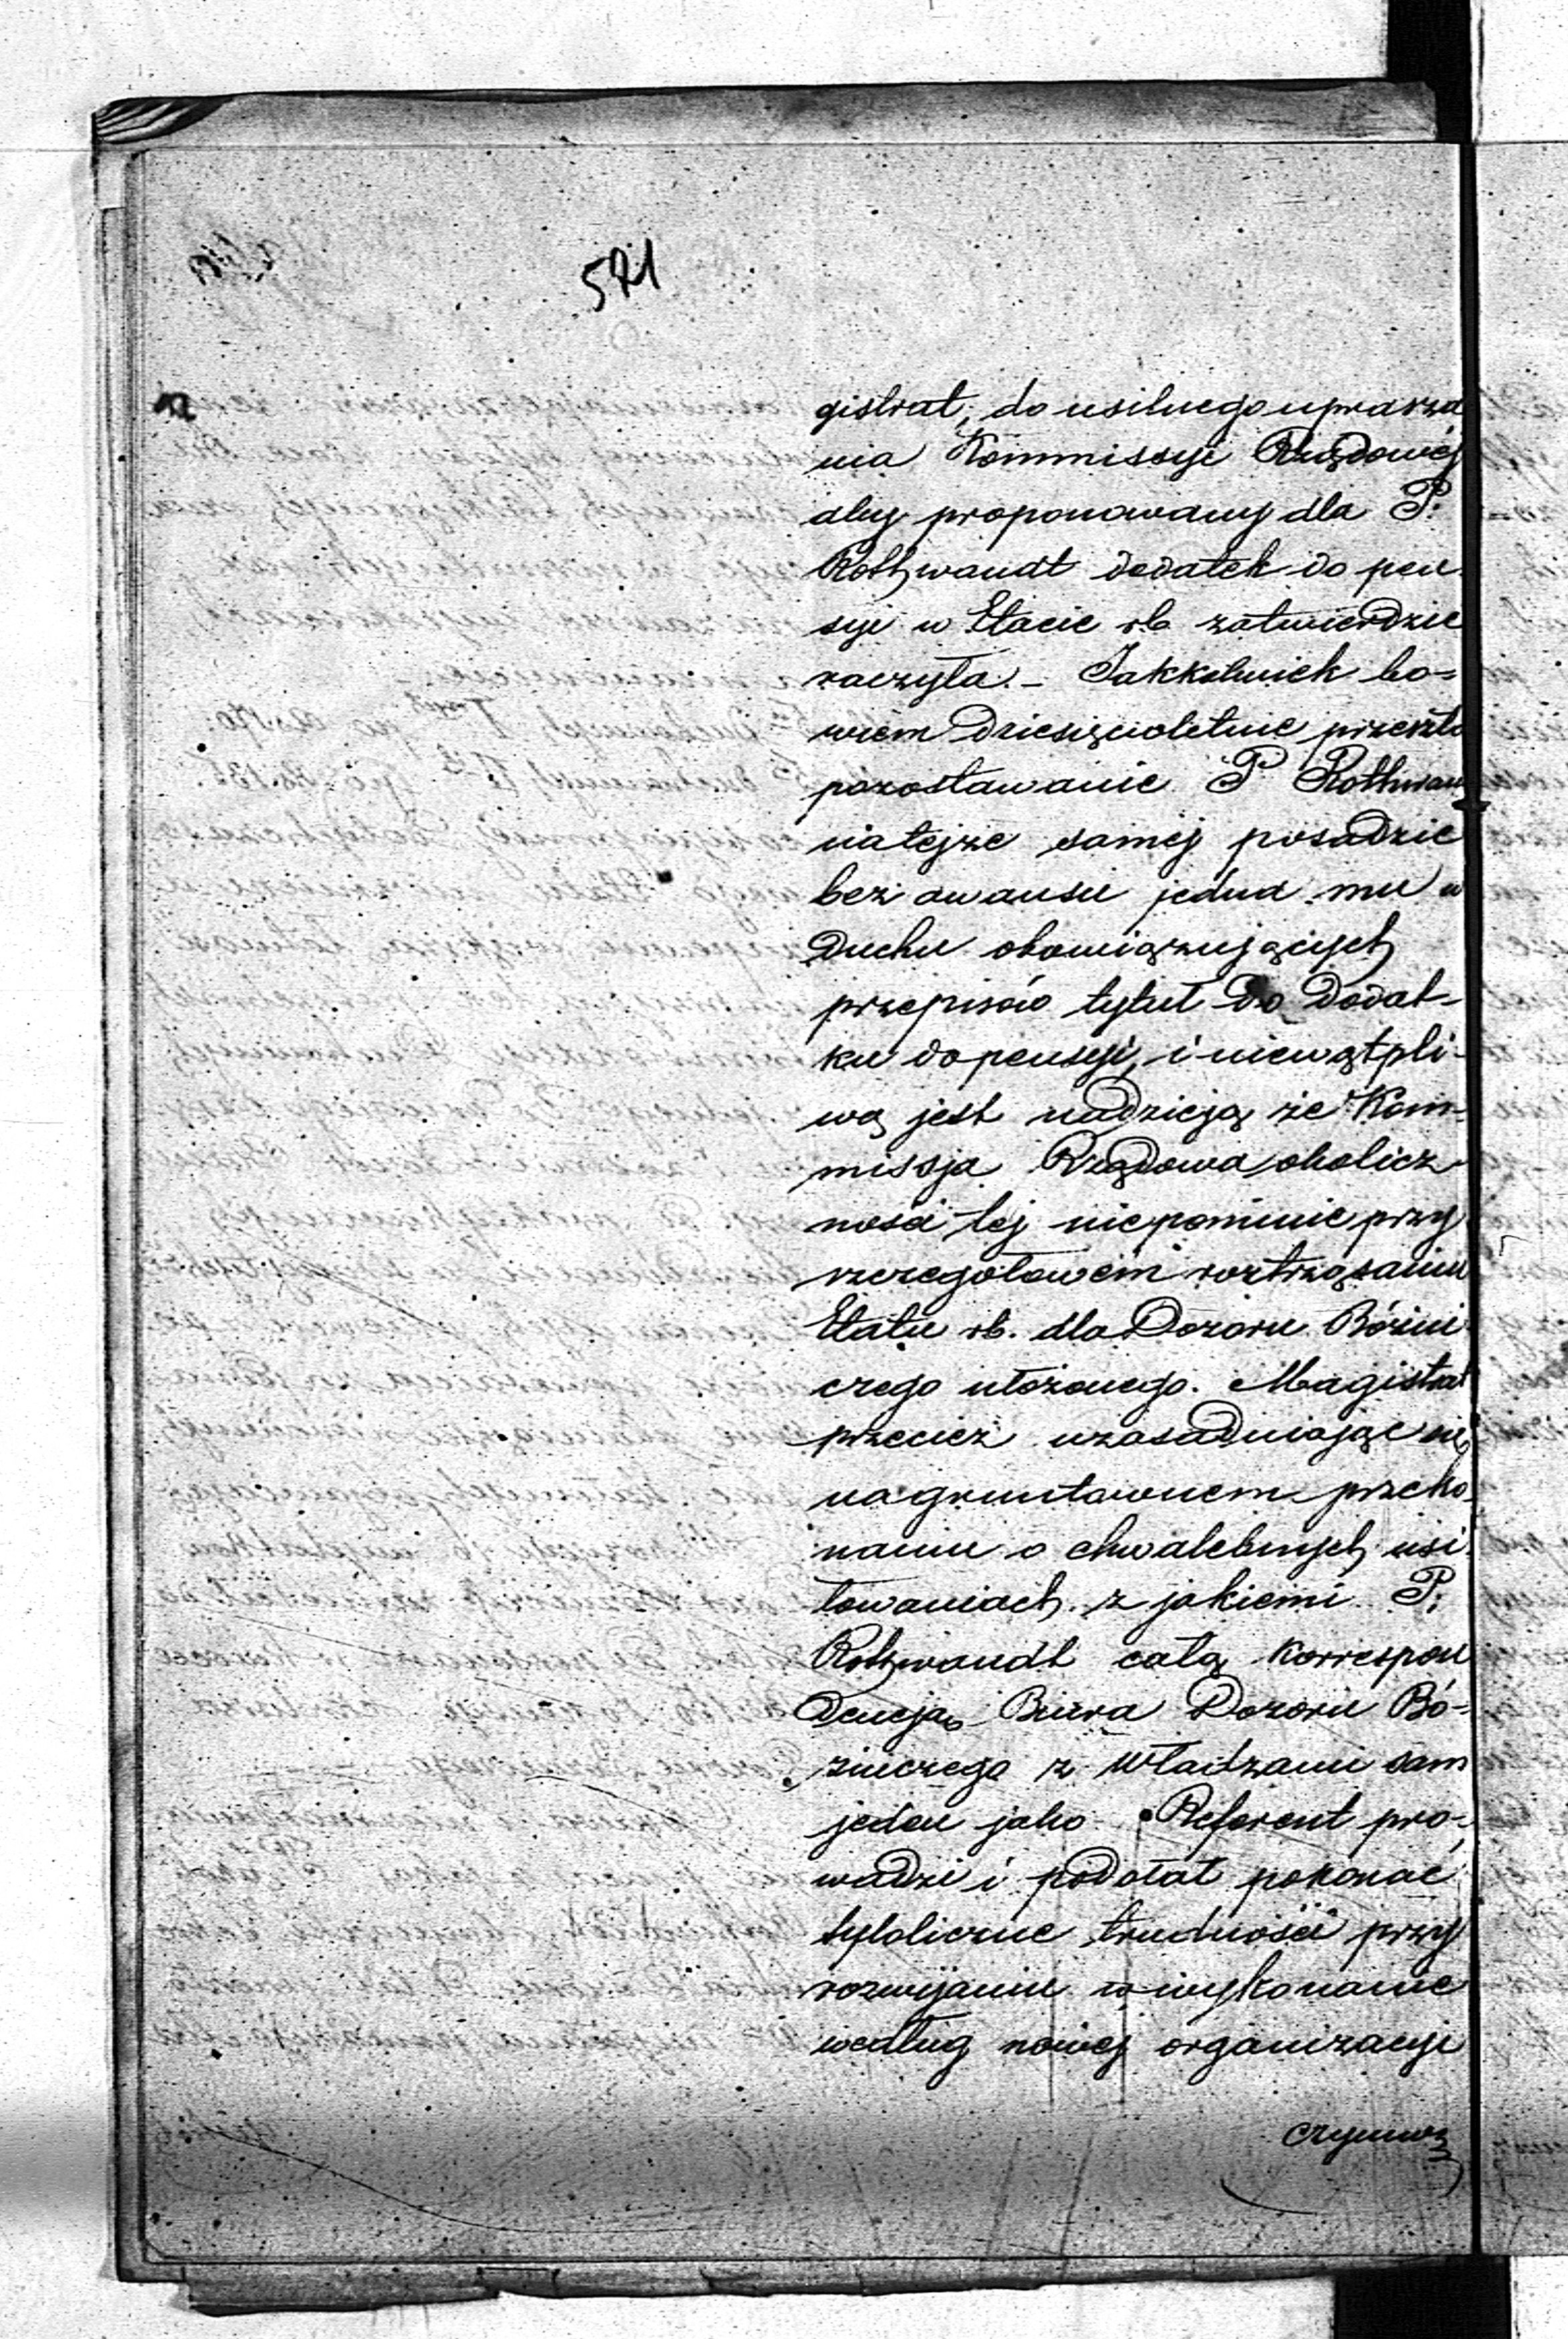 571
gistrat, do usilnego uprasza
nia Kommissyi Rządowéj
aby proponowany dla P.
Rothwandt dodatek do pen
syi w Etacie rb zatwierdzić
raczyła. – Jakkolwiek bo=
wiem dziesięcioletnie przeszło
pozostawanie P Rothwan
na tejże saméj posadzie
bez awansu jedna mu w
duchu obowiązujących
przepisów tytuł do dodat-
ku do pensyi, i niewątpli-
wą jest nadzieją że Kom-
missja Rządowa okolicz-
ności tej nie pominie przy
szczegółowém roztrząsaniu
Etatu rb. dla Dozoru Bóżni
czego ułożonego. Magistrat
przecież uzasadniając się
na gruntownem przeko
naniu o chwalebnych usi
łowaniach z jakiemi P.
Rothwandt całą korrespon
dencją Biura Dozoru Bó-
żniczego z Władzami sam
jeden jako Referent pro-
wadzi i podołał pokonać
tyloliczne trudności przy
rozwijaniu w wykonanie
według nowej organizacyi
czynną